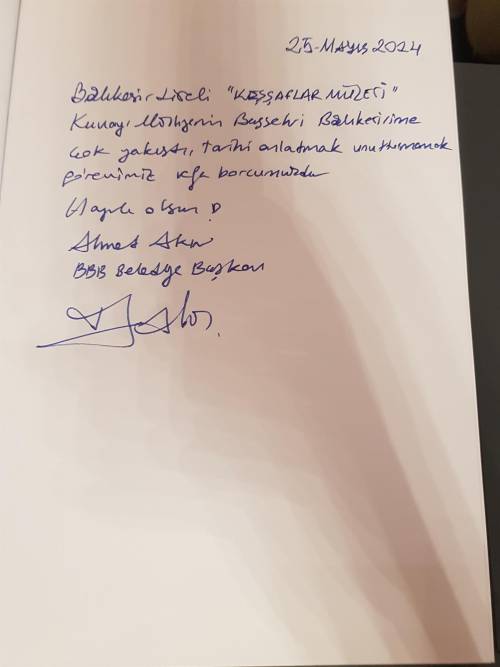 25-Mayıs 2024
Balıkesir Liseli "KEŞŞAFLAR MÜZESİ"
Kuvayı Milliyenin Başşehri Balıkesirime
çok yakıştı, tarihi anlatmak unutturmamak
görevimiz vefa borcumuzdur
Hayırlı olsun
Ahmet Akın
BBB Belediye Başkanı